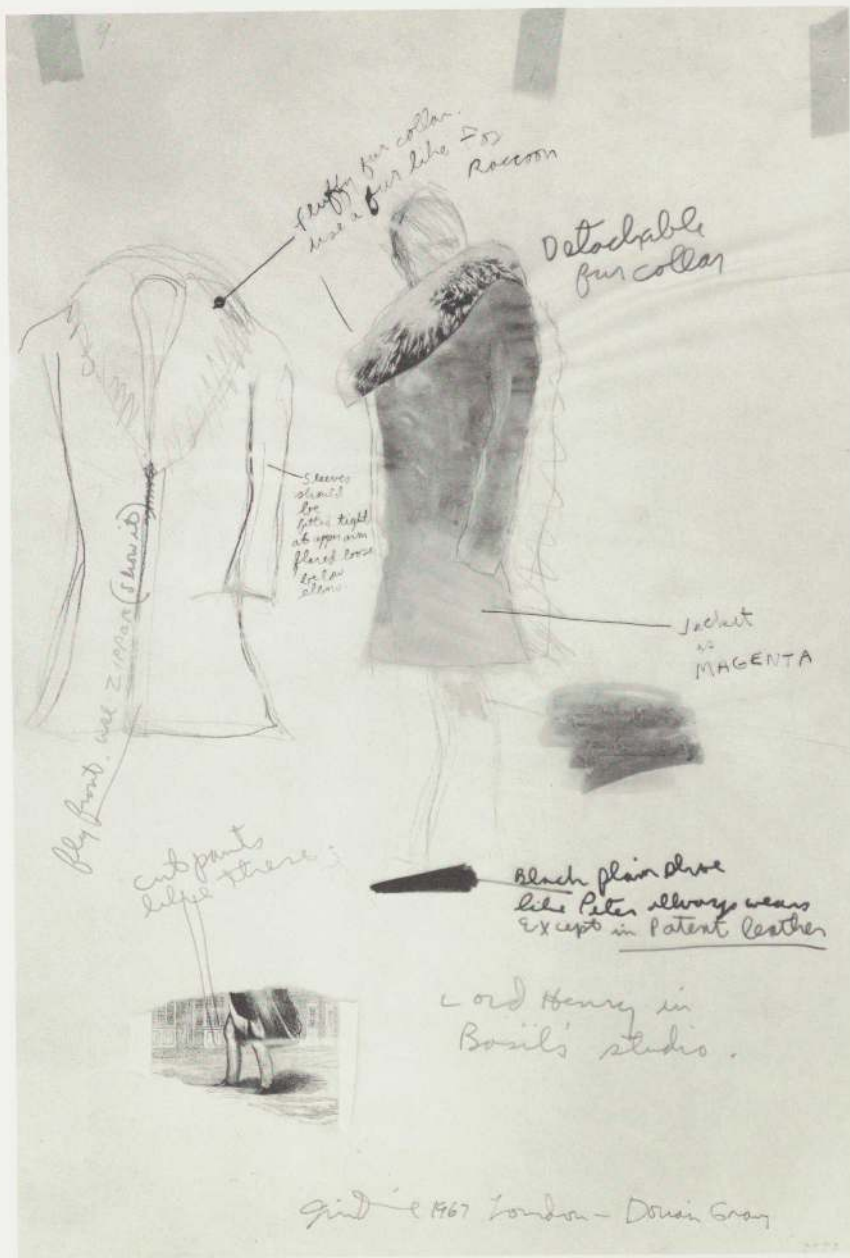 9.
fluffy fur collar.
use a fur like or
Raccoon
Detachable
fur collar
Sleeves
should
be
fitted tight
at upper arm
flared loose
below
elbow.
fly front. use ZIPPER (show it)
Jacket
is
MAGENTA
cut pants
like these:
Black plain shoe
like Peter always wears
Except in Patent leather
Lord Henry in
Basil's studio.
1967 London - Dorian Gray